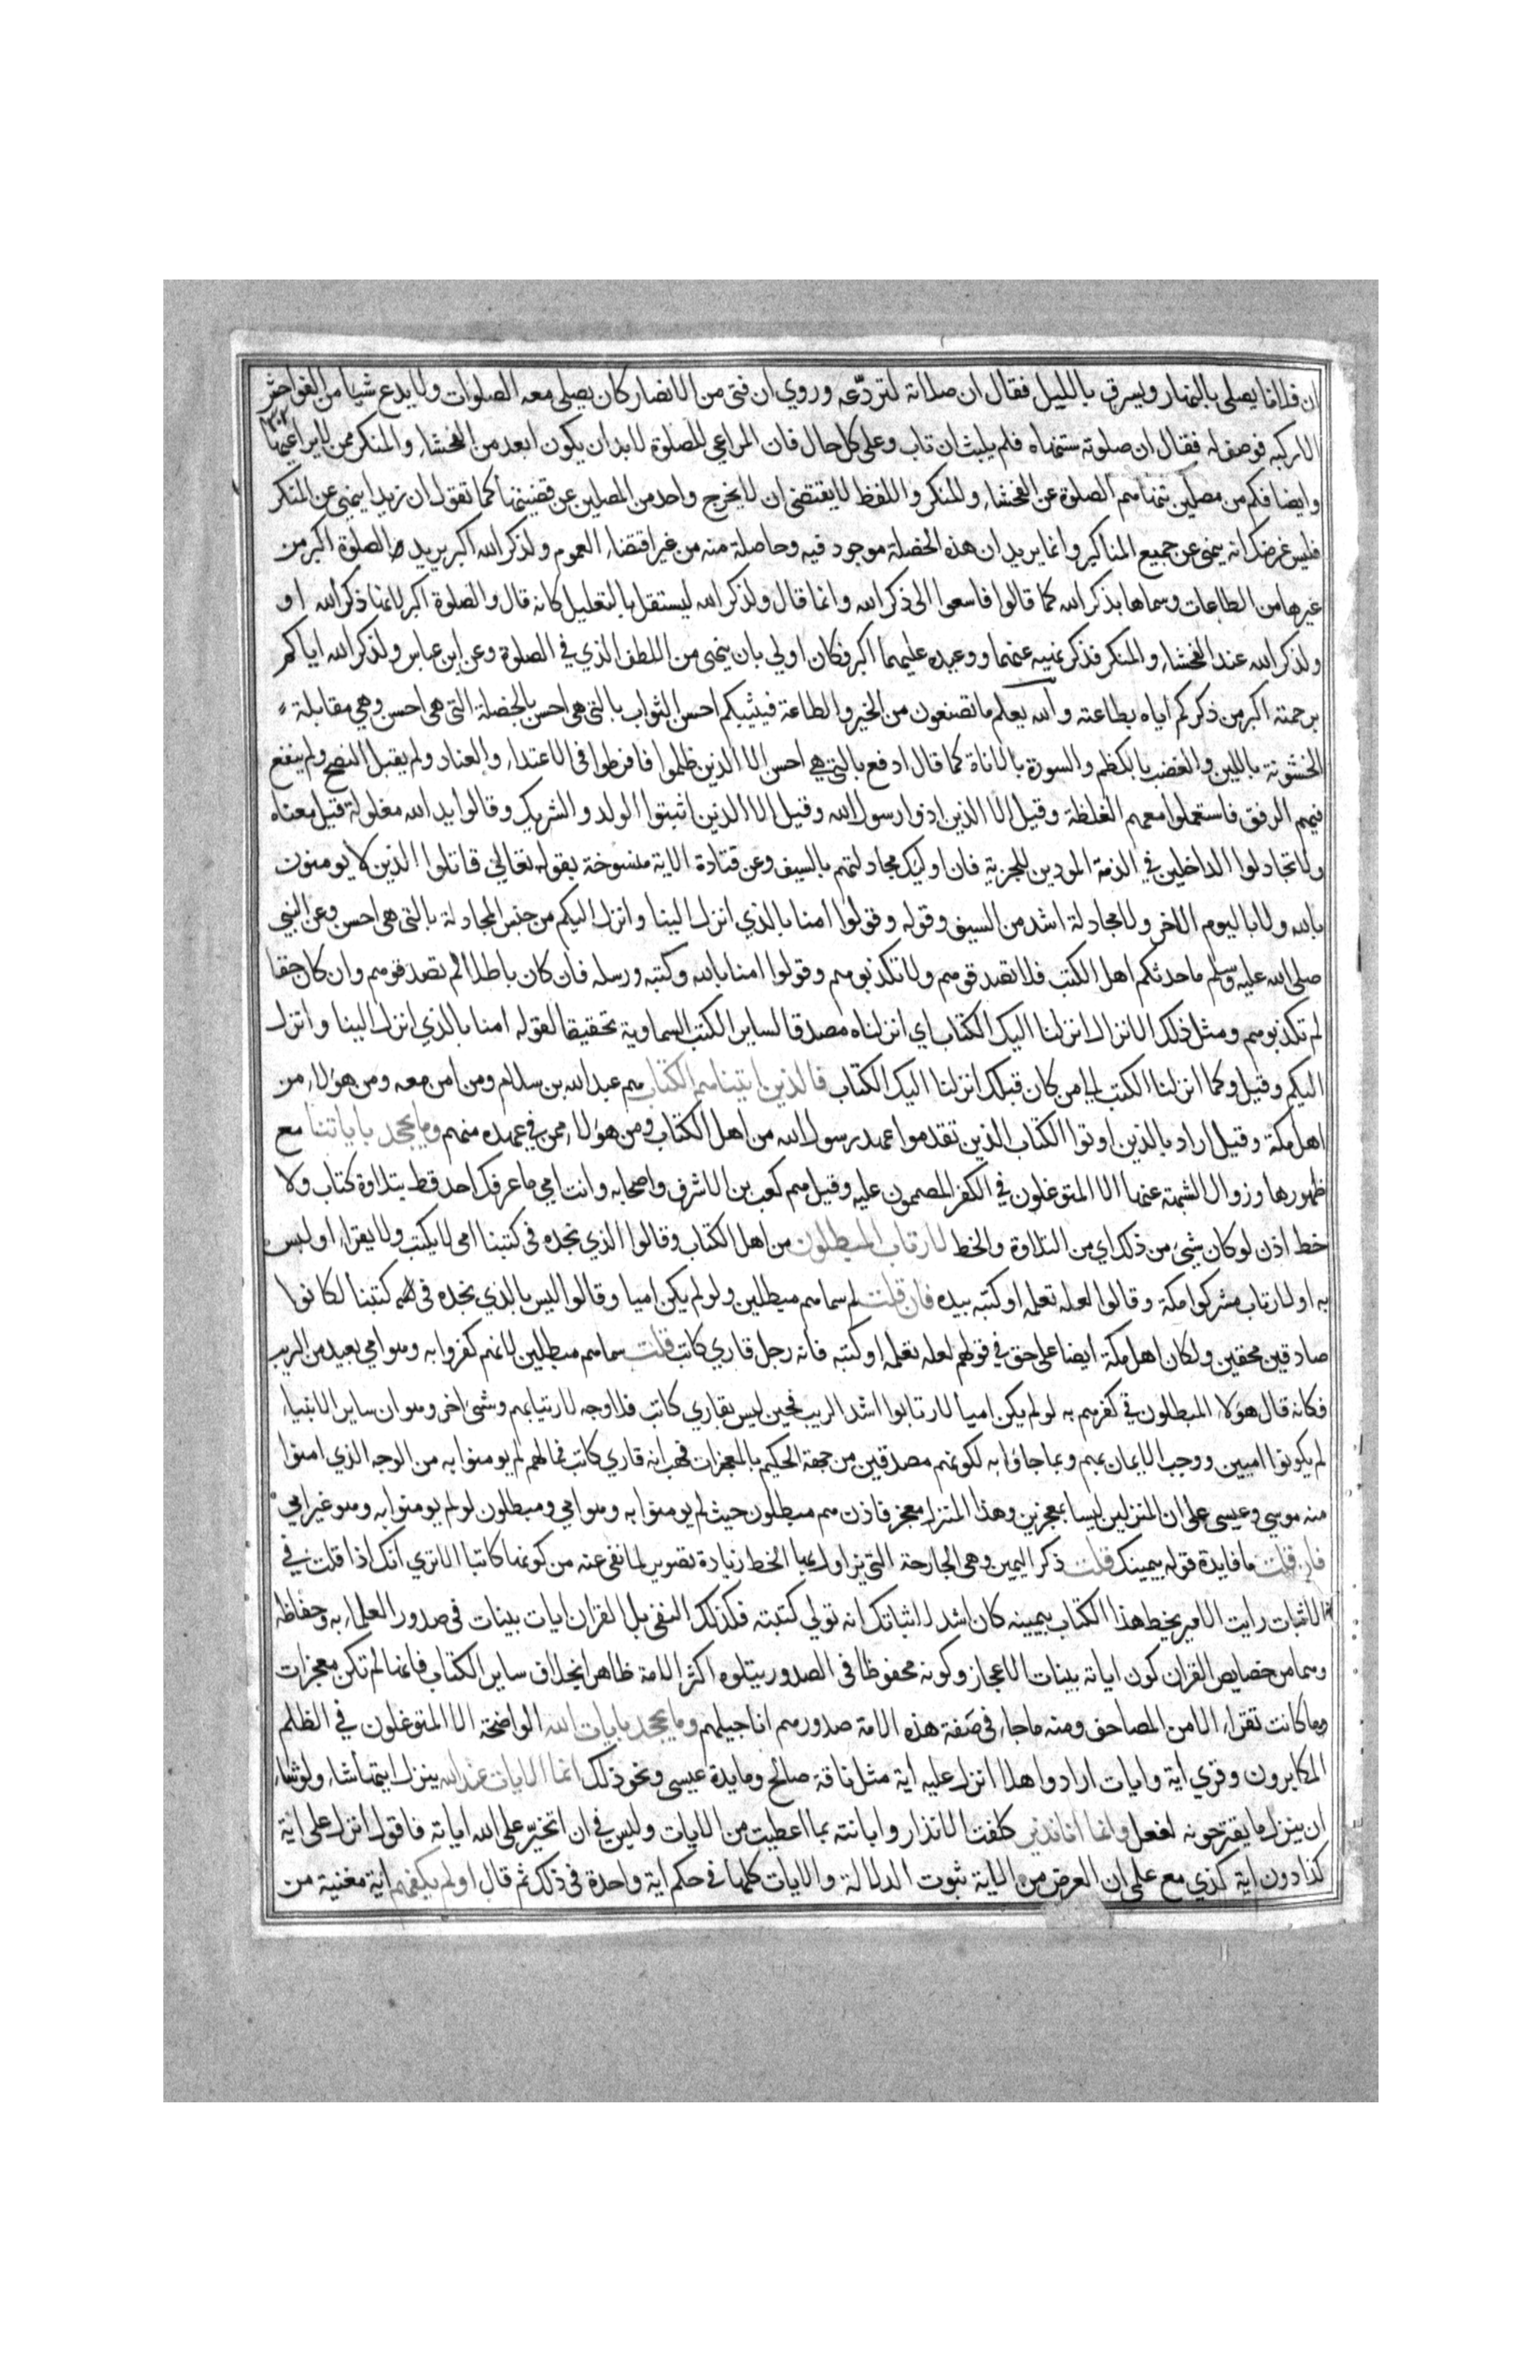 ان فلانا يصلي بالنهار ويسرق بالليل فقال ان صلاته لتردّعه وروي ان فتى من الانصار كان يصلي معه الصلوات ولا يدع شيأ من الفواحش
الا ركبه فوصف له فقال ان صلوته ستنهاه فلم يلبث ان تاب وعلى كل حال فان المراعي للصلوة لابد ان يكون ابعد من الفحشاء والمنكر ممن لا يراعيها
وايضا فكم من مصلين تنهاهم الصلوة عن الفحشاء والمنكر واللفظ لا يقتضى ان لا يخرج واحد من المصلين عن قضيتها كما تقول ان زيدا ينهى عن المنكر
فليس غرضك انه ينهى عن جميع المناكير وانما يريد ان هذه الخصلة موجود فيه وحاصلة منه من غير اقتضاء العموم ولذكر الله اكبر يريد الصلوة اكبر من
غيرها من الطاعات وسماها بذكر الله كما قالوا فاسعوا الى ذكر الله وانما قال ولذكر الله ليستقل بالتعليل كانه قال والصلوة اكبر لانها ذكر الله او
ولذكر الله عند الفحشاء والمنكر فذكر نهيه عنهما ووعيده عليهما اكبر فكان اولي بان ينهى من اللطف الذي في الصلوة وعن ابن عباس ولذكر الله اياكم
برحمته اكبر من ذكركم اياه بطاعته والله يعلم ما تصنعون من الخير والطاعة فيثيبكم احسن الثواب بالتى هى احسن بالخصلة التى هى احسن وهي مقابلة
الخشونة باللين والغضب بالكظم والسورة بالاناة كما قال ادفع بالتي هي احسن الا الذين ظلموا فافرطوا فى الاعتداء والعناد ولم يقبل النصح ولم ينفع
فيهم الرفق فاستعملوا معهم الغلظة وقيل الا الذين اذوا رسول الله وقيل الا الذين اثبتوا الولد والشريك وقالوا يد الله مغلولة قيل معناه
ولا تجادلوا الداخلين في الذمة المودين للجزية فان اوليك مجادلتهم بالسيف وعن قتادة الاية منسوخة بقوله تعالي قاتلوا الذين لا يومنون
بالله ولا باليوم الاخر ولا مجادلة اشد من السيف وقوله وقولوا امنا بالذي انزل الينا وانزل اليكم من جنس المجادلة بالتى هى احسن وعن النبي
صلى الله عليه وسلم ما حدثكم اهل الكتب فلا تصدقوهم ولا تكذبوهم وقولوا امنا بالله وكتبه ورسله فان كان باطلا لم تصدقوهم وان كان حقا
لم تكذبوهم ومثل ذلك الانزال انزلنا اليك الكتاب اي انزلناه مصدقا لساير الكتب السماوية تحقيقا لقوله امنا بالذي انزل الينا وانزل
اليكم وقيل وكما انزلنا الكتب الي من كان قبلك انزلنا اليك الكتاب فالذين اتيناهم الكتاب هم عبد الله بن سلام ومن امن معه ومن هؤلاء من
اهل مكة وقيل اراد بالذين اوتوا الكتاب الذين تقدموا عهد رسول الله من اهل الكتاب ومن هؤلاء ممن في عهده منهم وما يجحد باياتنا مع
ظهورها وزوال الشبهة عنها الا المتوغلون في الكفر المصممون عليه وقيل هم كعب بن الاشرف واصحابه وانت امي ما عرفك احد قط بتلاوة كتاب ولا
خط اذن لو كان شئ من ذلك اي من التلاوة والخط لارتاب المبطلون من اهل الكتاب وقالوا الذي نجده فى كتبنا امى لا يكتب ولا يقراء او ليس
به او لارتاب مشركوا مكة وقالوا لعله تعلمه او كتبه بيده فان قلت لم سماهم مبطلين ولو لم يكن اميا وقالوا ليس بالذي نجده فى كتبنا لكانوا
صادقين محقين ولكان اهل مكة ايضا على حق في قولهم لعله تعلمه او كتبه فانه رجل قاري كاتب قلت سماهم مبطلين لانهم كفروا به وهو امي بعيد من الريب
فكانه قال هؤلاء المبطلون في كفرهم به لو لم يكن اميا لارتابوا اشد الريب فحين ليس بقاري كاتب فلا وجه لارتيابهم وشئ اخر وهو ان ساير الانبياء
لم يكونوا اميين ووجب الايمان بهم وبما جاؤا به لكونهم مصدقين من جهة الحكيم بالمعجزات فهب انه قاري كاتب فما لهم لم يومنوا به من الوجه الذي امنوا
منه موسي وعيسى على ان المنزلين ليسا بمعجزين وهذا المنزل معجز فاذن هم مبطلون حيث لم يومنوا به وهو امي ومبطلون لو لم يومنوا به وهو غير امي
فان قلت ما فايدة قوله بيمينك قلت ذكر اليمين وهى الجارحة التي يزاول بها الخط زيادة تصوير لما نفى عنه من كونه كاتبا الا تري انك اذا قلت في
الاثبات رايت الامير يخط هذا الكتاب بيمينه كان اشد لاثباتك انه تولي كتبته فكذلك النفى بل القران ايات بينات فى صدور العلماء به وحفاظه
وهما من خصايص القران كون اياته بينات الاعجاز وكونه محفوظا فى الصدور يتلوه اكثر الامة ظاهرا بخلاف ساير الكتاب فانها لم تكن معجزات
وما كانت تقراء الا من المصاحف ومنه ما جاء فى صفة هذه الامة صدورهم اناجيلهم وما يجحد بايات الله الواضحة الا المتوغلون في الظلم
المكابرون وقري اية وايات ارادوا هلا انزل عليه اية مثل ناقة صالح ومايدة عيسى ونحو ذلك انما الايات عند الله ينزل ايتها شاء ولو شاء
ان ينزل ما يقترحونه لفعل وانما انا نذير كلفت الانذار وابانته بما اعطيت من الايات وليس في ان اتخيّر على الله اياته فاقول انزل على اية
كذا دون اية كذي مع علمي ان الغرض من الاية ثبوت الدلالة والايات كلها في حكم اية واحدة فى ذلك ثم قال اولم يكفهم اية مغنية من